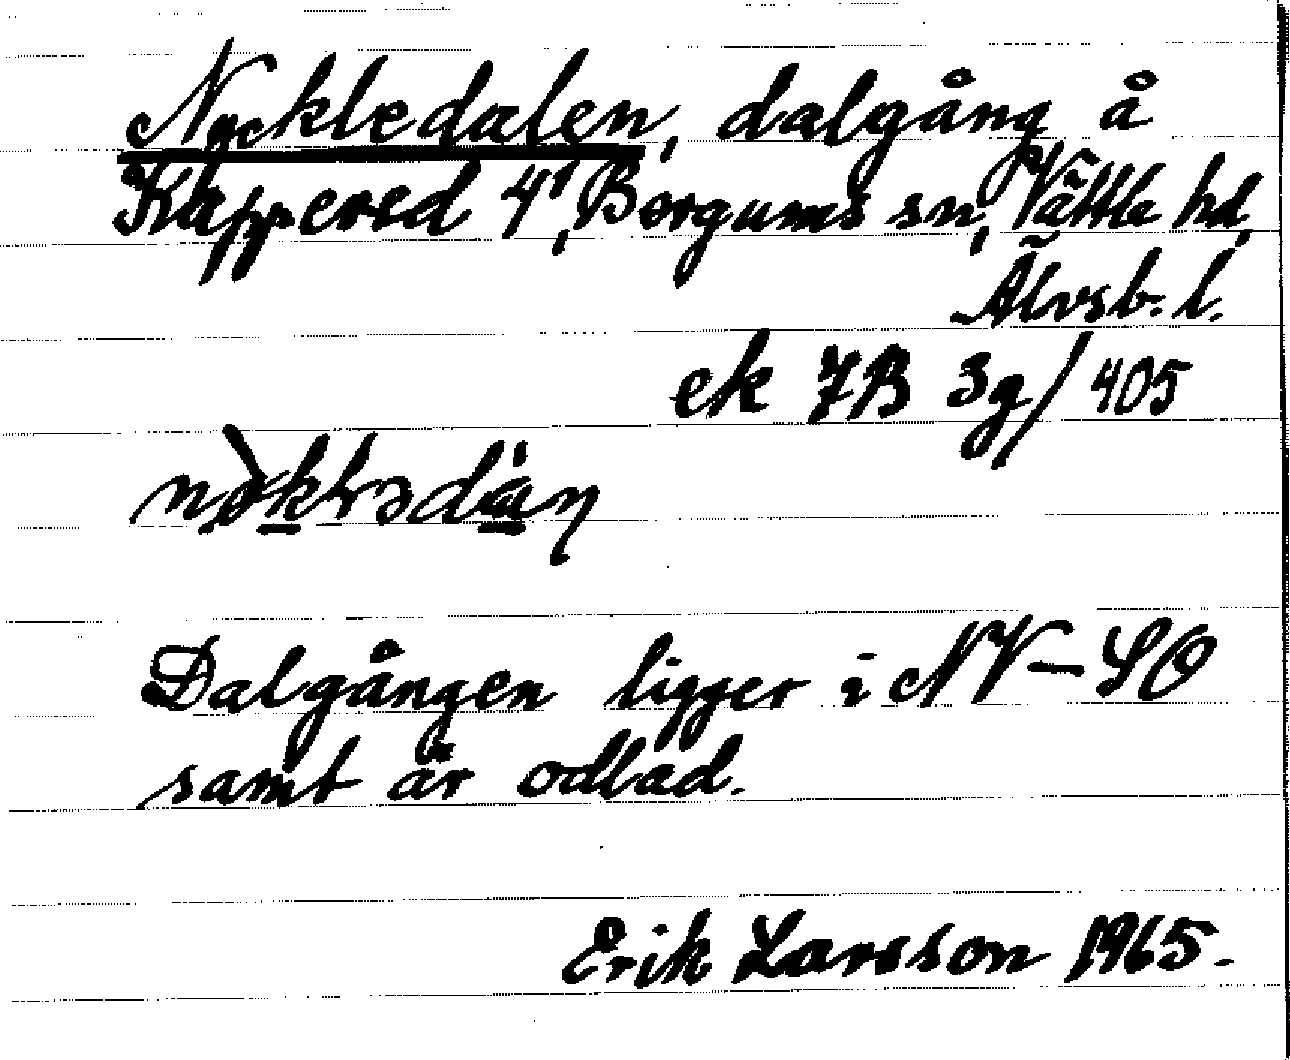 Nyckledalen, dalgång å
Kappered 4¹, Bergums sn, Vättle hd,
Älvsb. l.
ek 7B 3g/405
Dalgången ligger i NV–SO
samt är odlad.
Erik Larsson 1965.